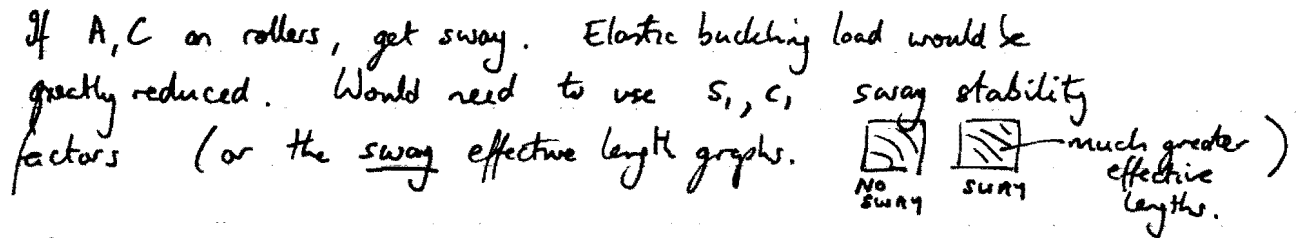 If A, C on rollers, get sway. Elastic buckling load would be
greatly reduced. Would need to use S₁, C₁ sway stability
factors (or the sway effective length graphs. NO SWAY SWAY much greater effective lengths. )